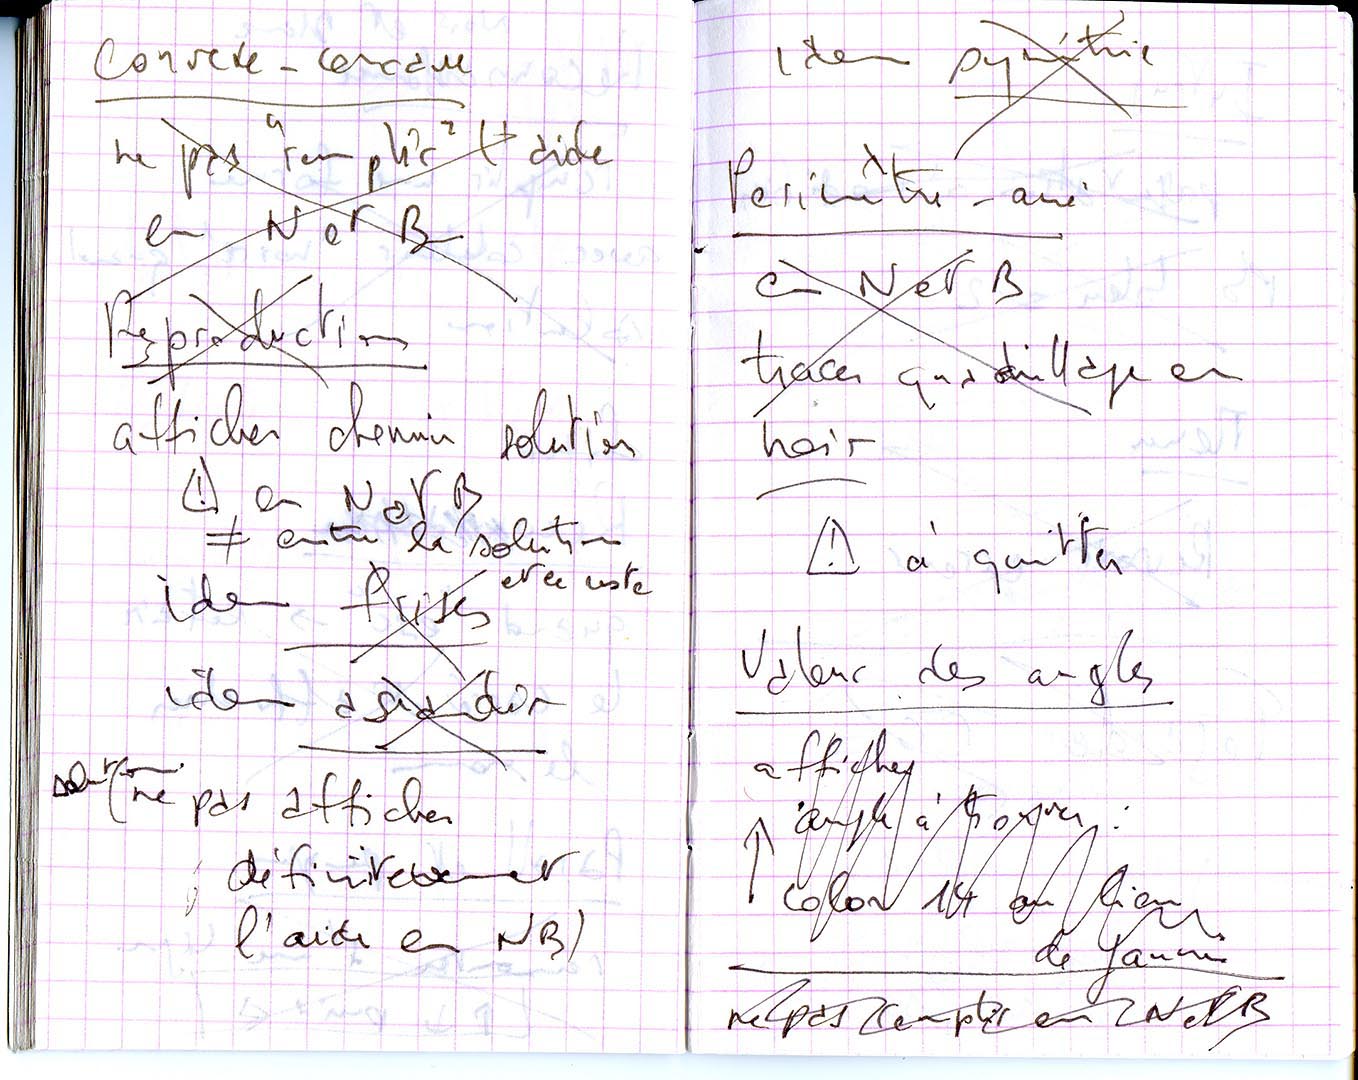 Convexe - concave
ne pas "remplir" l'aide
en N et B
Reproduction
afficher chemin solution
⚠ en N et B
≠ entre la solution
et ce reste
idem frises
idem
solution
(ne pas afficher
définitivement
l'aide en NB)
idem symétrie
Périmètre - aire
en N et B
tracer quadrillage en
noir
⚠ à quitter
Valeur des angles
afficher
angle à trouver :
↑ color 14 au lieu
de jaune
ne pas remplir en N et B